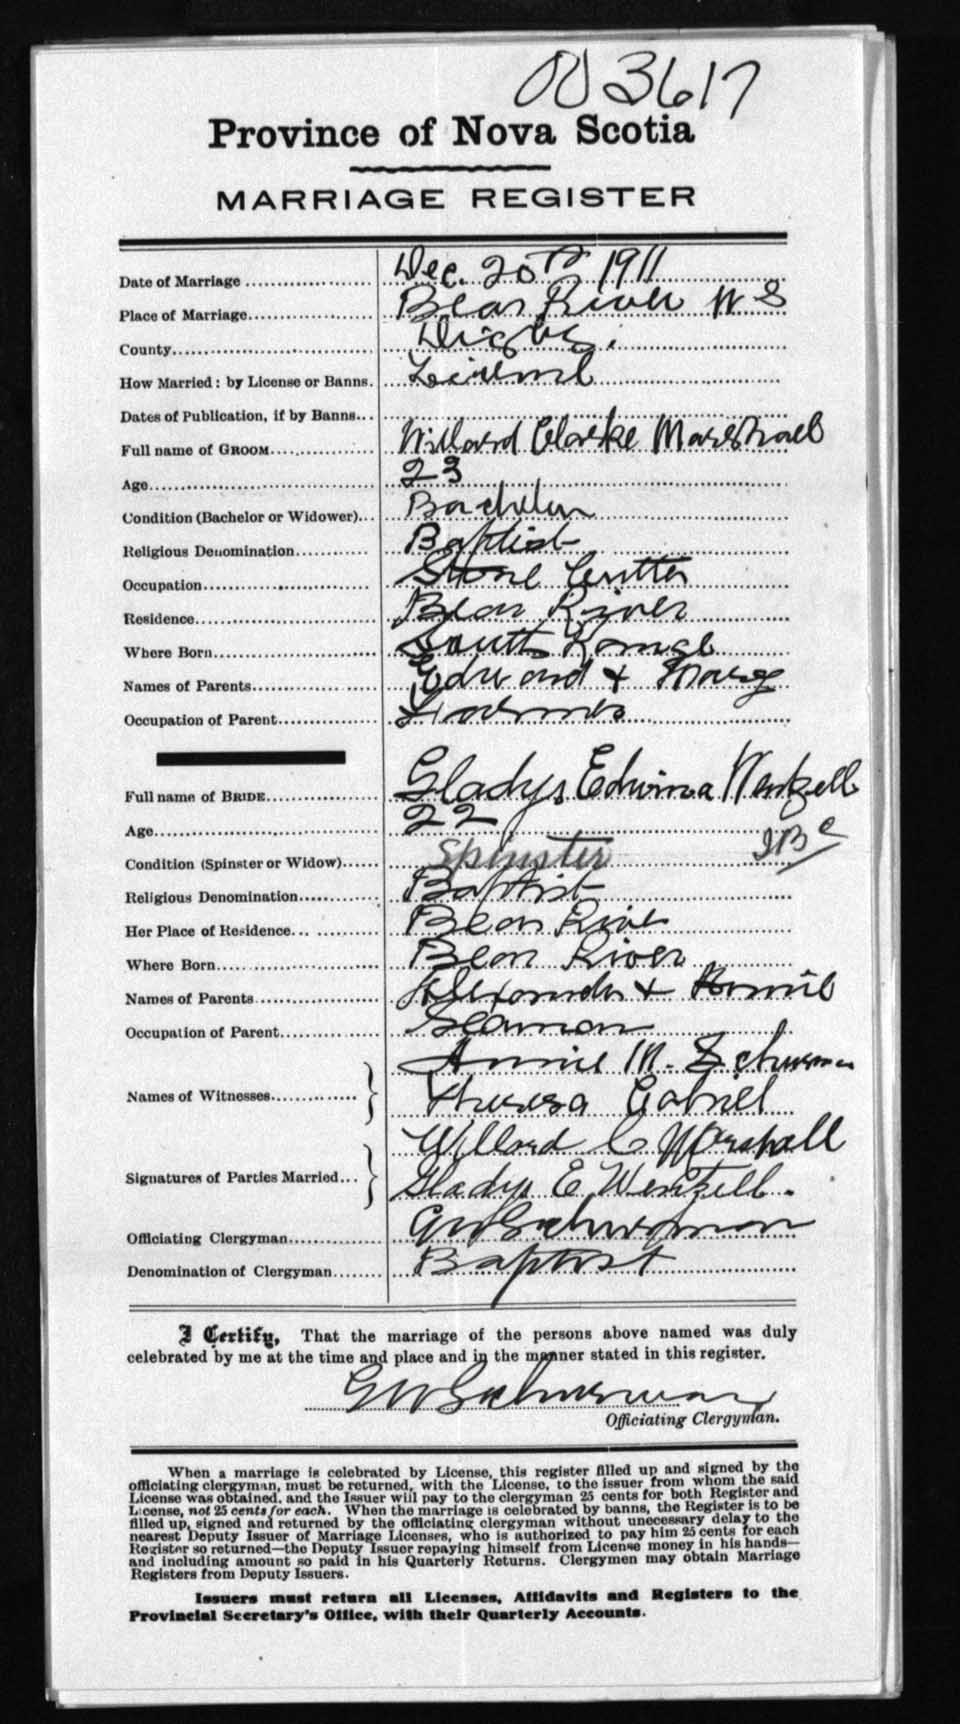 003617
Province of Nova Scotia
MARRIAGE REGISTER
Date of Marriage Dec. 20th 1911
Place of Marriage Bear River N S
County Digby.
How Married: by License or Banns. License
Dates of Publication, if by Banns
Full name of GROOM Willard Clarke Marshall
Age 23
Condition (Bachelor or Widower) Bachelor
Religious Denomination Baptist
Occupation Stone Cutter
Residence Bear River
Where Born South Range
Names of Parents Edward & Mary
Occupation of Parent
Full name of BRIDE Gladys Edwina Wentzell
Age 22
Condition (Spinster or Widow) Spinster
Religious Denomination Baptist
Her Place of Residence Bear River
Where Born Bear River
Names of Parents Alexander & Annie
Occupation of Parent Seaman
Names of Witnesses Annie M. Schurman
Theresa Gabriel
Signatures of Parties Married Willard C Marshall
Gladys E Wentzell.
Officiating Clergyman G W Schurman
Denomination of Clergyman Baptist
I Certify, That the marriage of the persons above named was duly
celebrated by me at the time and place and in the manner stated in this register.
G W Schurman
Officiating Clergyman.
When a marriage is celebrated by License, this register filled up and signed by the
officiating clergyman, must be returned, with the License, to the issuer from whom the said
License was obtained, and the Issuer will pay to the clergyman 25 cents for both Register and
License, not 25 cents for each. When the marriage is celebrated by banns, the Register is to be
filled up, signed and returned by the officiating clergyman without unnecessary delay to the
nearest Deputy Issuer of Marriage Licenses, who is authorized to pay him 25 cents for each
Register so returned—the Deputy Issuer repaying himself from License money in his hands—
and including amount so paid in his Quarterly Returns. Clergymen may obtain Marriage
Registers from Deputy Issuers.
Issuers must return all Licenses, Affidavits and Registers to the
Provincial Secretary's Office, with their Quarterly Accounts.